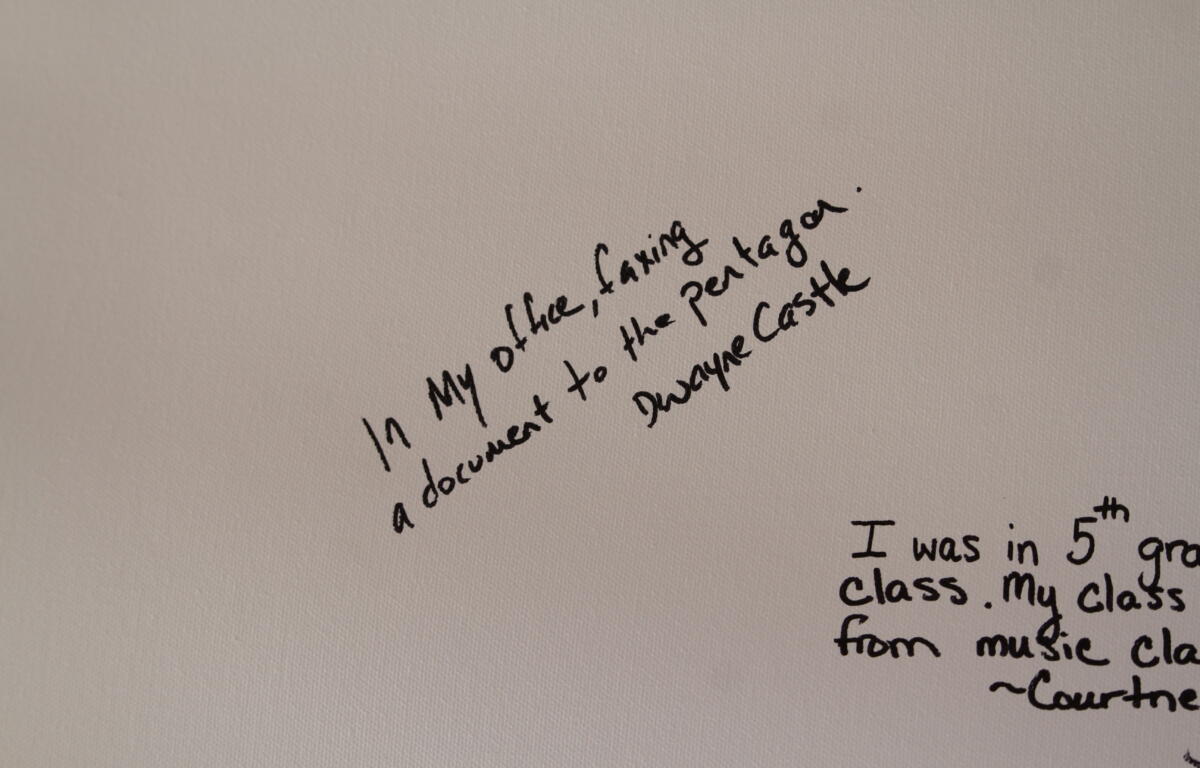 In My office, faxing
a document to the pentagon.
Dwayne Castle
I was in 5th gra
class. My class
from music cla
~Courtne